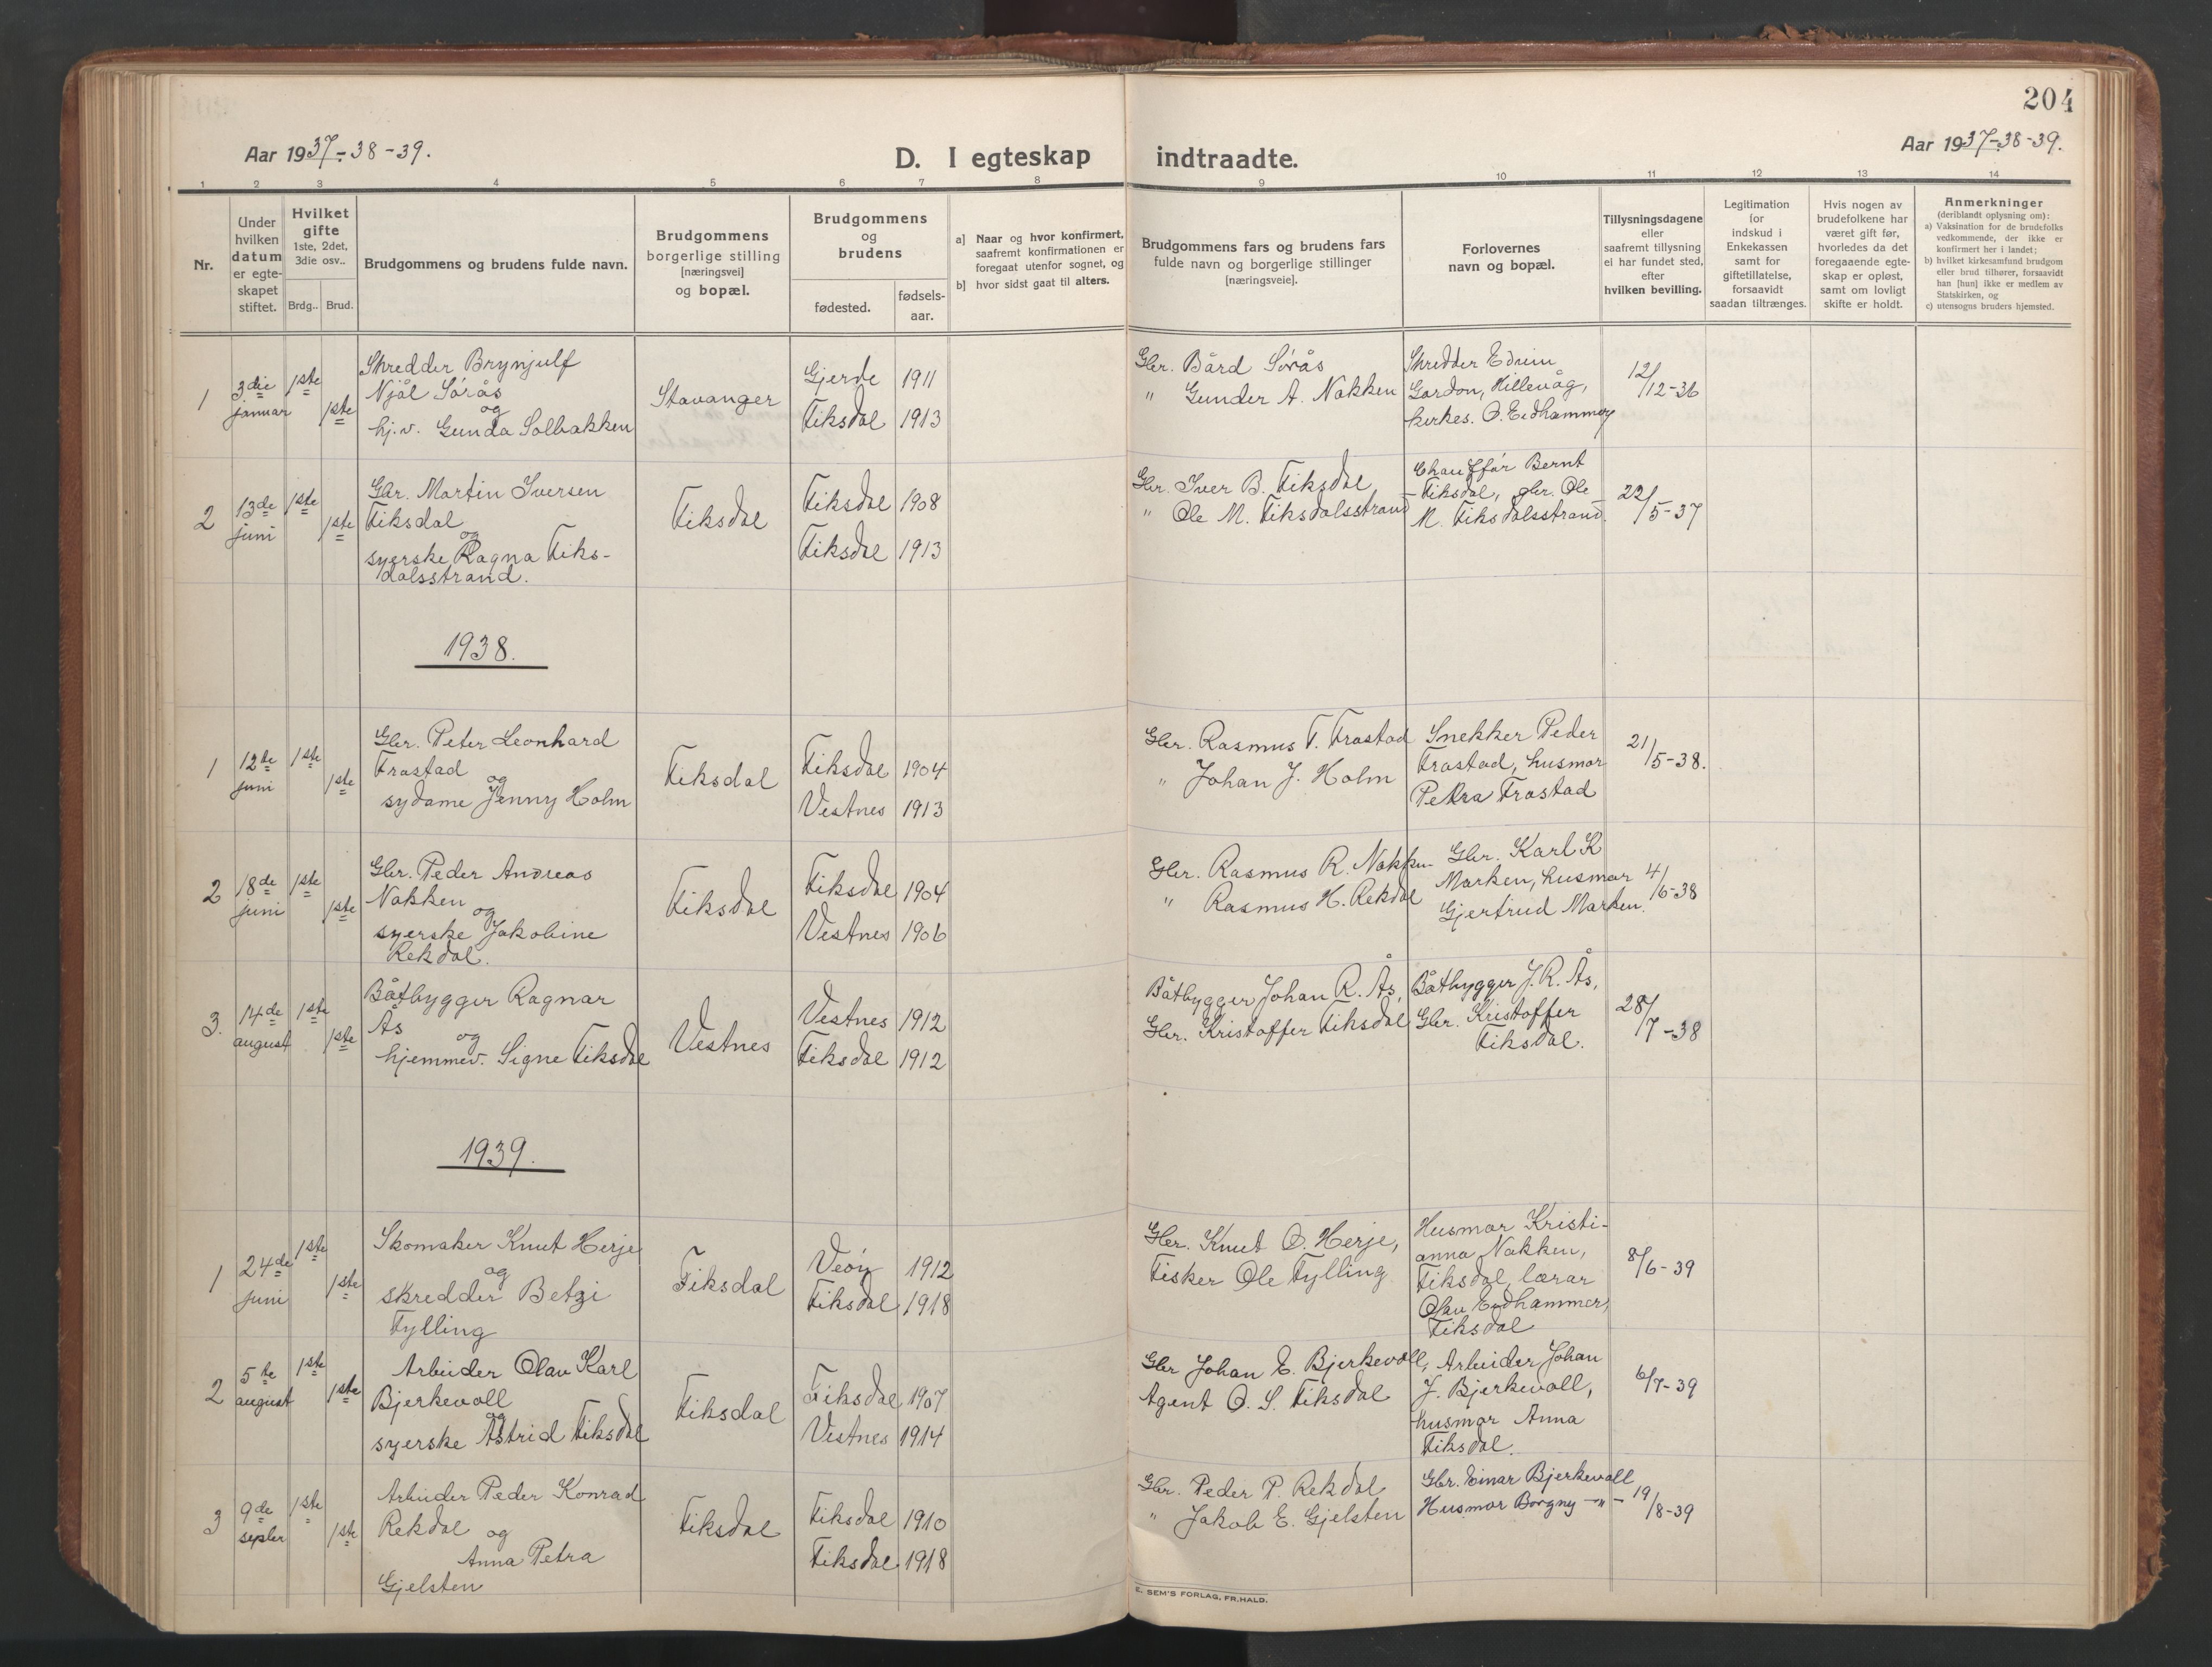 204
Aar 1937-38-39.
D. I egteskap indtraadte.
Aar 1937-38-39.
1 2 3 4 5 6 7 8 9 10 11 12 13 14
Nr.
Under
hvilken
datum
er egte-
skapet
stiftet.
Hvilket
gifte
1ste, 2det,
3die osv..
Brdg.. Brud.
Brudgommens og brudens fulde navn.
Brudgommens
borgerlige stilling
[næringsvei]
og bopæl.
Brudgommens
og
brudens
fødested.
fødsels-
aar.
a] Naar og hvor konfirmert,
saafremt konfirmationen er
foregaat utenfor sognet, og
b] hvor sidst gaat til alters.
Brudgommens fars og brudens fars
fulde navn og borgerlige stillinger
[næringsveie].
Forlovernes
navn og bopæl.
Tillysningsdagene
eller
saafremt tillysning
ei har fundet sted,
efter
hvilken bevilling.
Legitimation
for
indskud i
Enkekassen
samt for
giftetillatelse,
forsaavidt
saadan tiltrænges.
Hvis nogen av
brudefolkene har
været gift før,
hvorledes da det
foregaaende egte-
skap er opløst,
samt om lovligt
skifte er holdt.
Anmerkninger
(deriblandt oplysning om):
a) Vaksination for de brudefolks
vedkommende, der ikke er
konfirmert her i landet;
b) hvilket kirkesamfund brudgom
eller brud tilhører, forsaavidt
han [hun] ikke er medlem av
Statskirken, og
c) utensogns bruders hjemsted.
1
3die
januar
1ste
1ste
Skredder Brynjulf
Njål Sørås
og
hj.v. Gunda Solbakken
Stavanger
Gjerde 1911
Fiksdal 1913
Gbr. Bård Sørås
" Gunder A. Nakken
Skredder Edvin
Gordon, Hillevåg,
kirkes. O. Eidhammer
12/12-36
2
13de
juni
1ste
1ste
Gbr. Martin Iversen
Fiksdal
og
syerske Ragna Fiks-
dalsstrand.
Fiksdal
Fiksdal 1908
Fiksdal 1913
Gbr. Iver B. Fiksdal
" Ole M. Fiksdalsstrand
Chauffør Bernt
Fiksdal, gbr. Ole
M. Fiksdalsstrand.
22/5-37
1938.
1
12te
juni
1ste
1ste
Gbr. Peter Leonhard
Frostad
og
sydame Jenny Holm
Fiksdal
Fiksdal 1904
Vestnes 1913
Gbr. Rasmus T. Frostad
" Johan J. Holm
Snekker Peder
Frostad, husmor
Petra Frostad
21/5-38.
2
18de
juni
1ste
1ste
Gbr. Peder Andreas
Nakken
og
syerske Jakobine
Rekdal.
Fiksdal
Fiksdal 1904
Vestnes 1906
Gbr. Rasmus R. Nakken
" Rasmus H. Rekdal
Gbr. Karl K
Marken, husmor
Gjertrud Marken.
4/6-38
3.
14de
august
1ste
1ste
Båtbygger Ragnar
Ås
og
hjemmev. Signe Fiksdal
Vestnes
Vestnes 1912
Fiksdal 1912
Båtbygger Johan R. Ås,
Gbr. Kristoffer Fiksdal
Båtbygger J. R. Ås,
Gbr. Kristoffer
Fiksdal.
28/7-38
1939.
1
24de
juni
1ste
1ste
Skomaker Knut Herje
og
skredder Betzi
Fylling
Fiksdal
Veøy 1912
Fiksdal 1918
Gbr. Knut O. Herje,
Fisker Ole Fylling
Husmor Kristi-
anna Nakken,
Fiksdal, lærar
Olav Eidhammer,
Fiksdal
8/6-39
2
5te
august
1ste
1ste
Arbeider Olav Karl
Bjerkevoll
og
syerske Astrid Fiksdal
Fiksdal
Fiksdal 1907
Vestnes 1914
Gbr Johan E. Bjerkevoll,
Agent O. S. Fiksdal
Arbeider Johan
J. Bjerkevoll,
husmor Anna
Fiksdal.
6/7-39
3
9de
septbr
1ste
1ste
Arbeider Peder Konrad
Rekdal
og
Anna Petra
Gjelsten
Fiksdal
Fiksdal 1910
Fiksdal 1918
Gbr. Peder P. Rekdal
" Jakob E. Gjelsten
Gbr. Einar Bjerkevoll
Husmor Borgny -"-
19/8-39
E. SEM'S FORLAG, FR.HALD.